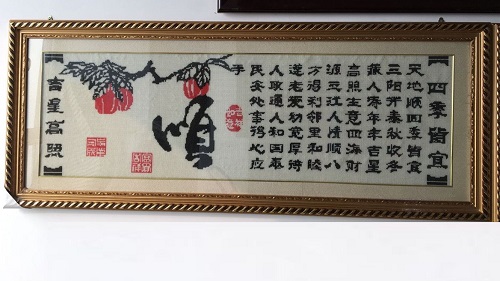 四季皆宜
天地順四季皆宜
三阳开泰秋收冬
藏人寿年丰吉星
高照生意四海财
源江人情順八
方得利邻里和睦
遵老爱幼宽厚待
人政通人和国泰
民安处事称心应
手
順
吉星高照